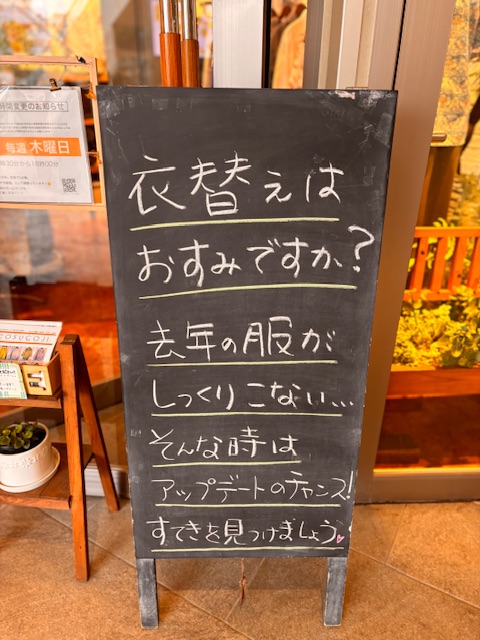 衣替えは
おすみですか?
去年の服が
しっくりこない...
そんな時は
アップデートのチャンス!
すてきを見つけましょう
時間変更のお知らせ
毎週 木曜日